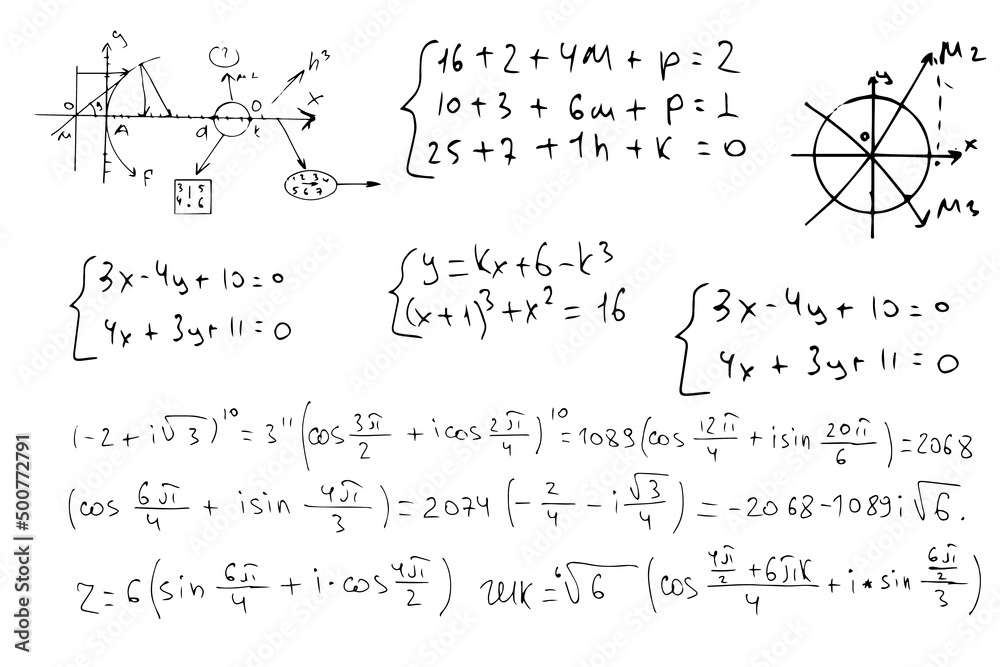 y
(?)
M2
h³
x
O
M
A
a
O
t
F
3 1 5
4 . 6
1 2 3 4
5 6 7
16 + 2 + 4m + p = 2
10 + 3 + 6m + p = 1
25 + 7 + 1h + k = 0
M2
y
o
x
M3
3x - 4y + 10 = 0
4x + 3y + 11 = 0
y = kx + 6 - k³
(x + 1)³ + x² = 16
3x - 4y + 10 = 0
4x + 3y + 11 = 0
(-2 + i√3)¹⁰ = 3¹¹(cos 3π/2 + i cos 2π/4)¹⁰ = 1089(cos 12π/4 + i sin 20π/6) = 2068
(cos 6π/4 + i sin 4π/3) = 2074(-2/4 - i √3/4) = -2068 - 1089i√6.
z = 6(sin 6π/4 + i · cos 4π/2) zцк = ⁶√6 (cos (4π/2 + 6πk)/4 + i * sin (6π/2)/3)
Adobe Stock | #500772791
Adobe Stock